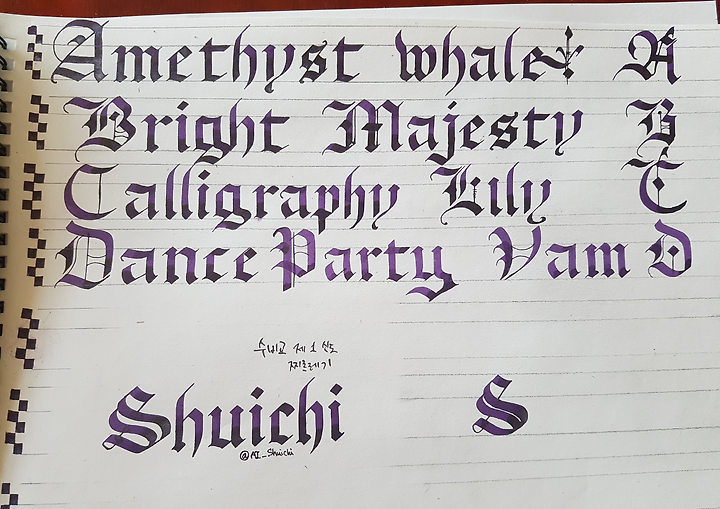 Amethyst whale A
Bright Majesty B
Calligraphy Lily C
Dance Party Vam D
수비교 제 1 신도
찌르레기
Shuichi S
@AI_Shuichi